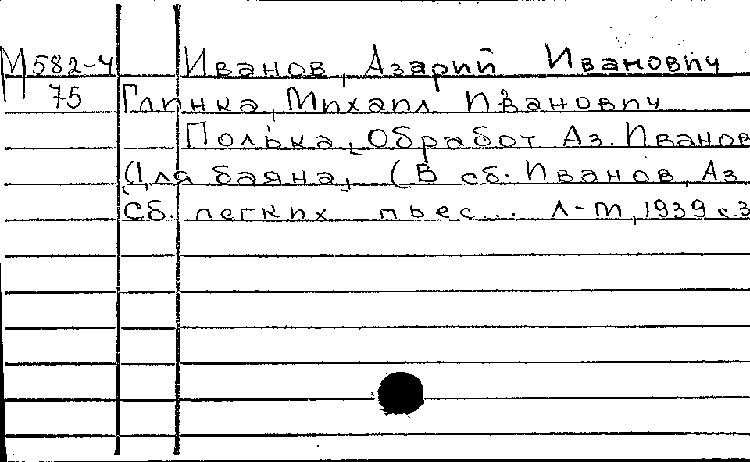 М582-4 Иванов, Азарий Иванович
75 Глинка, Михаил Иванович
Полька, Обработ Аз. Иванов
Для баяна, (В сб. Иванов, Аз
Сб. легких пьес... Л-М, 1939 с.3